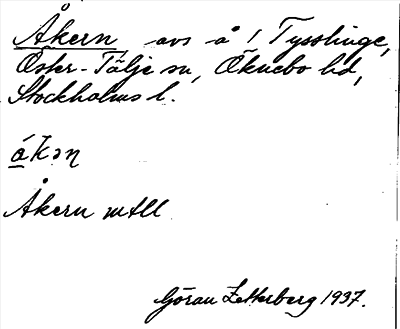 Åkern avs å i Tysslinge,
Öster-Tälje sn, Öknebo hd,
Stockholms l.
Åkern mtll
Göran Zetterberg 1937.